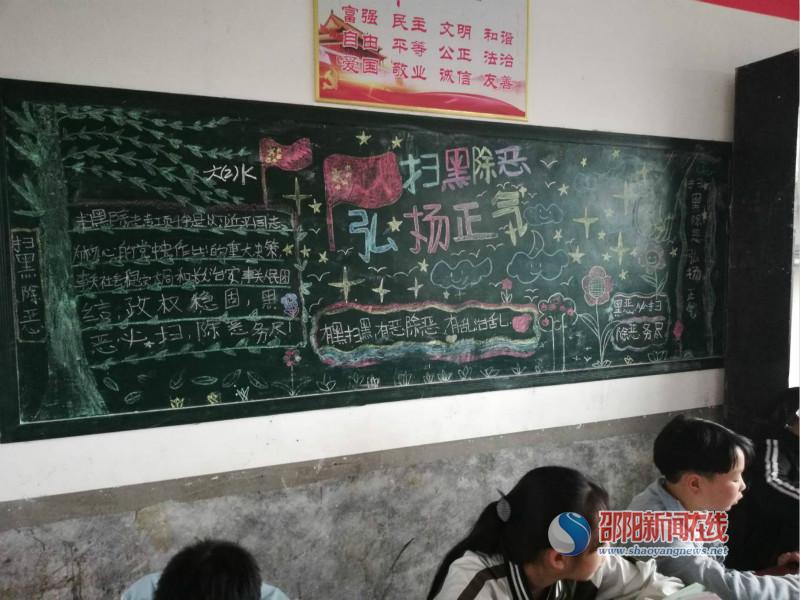 富强 民主 文明 和谐
自由 平等 公正 法治
爱国 敬业 诚信 友善
扫黑除恶
弘扬正气
扫黑除恶专项斗争是以习近平同志
为核心的党中央作出的重大决策,
事关社会稳定大局和长治久安,事关民困
结,政权稳固,黑
恶必扫,除恶务尽
扫黑除恶
有黑扫黑 有恶除恶 有乱治乱
黑恶必扫
除恶务尽
扫黑除恶 弘扬正气
邵阳新闻在线
www.shaoyangnews.net